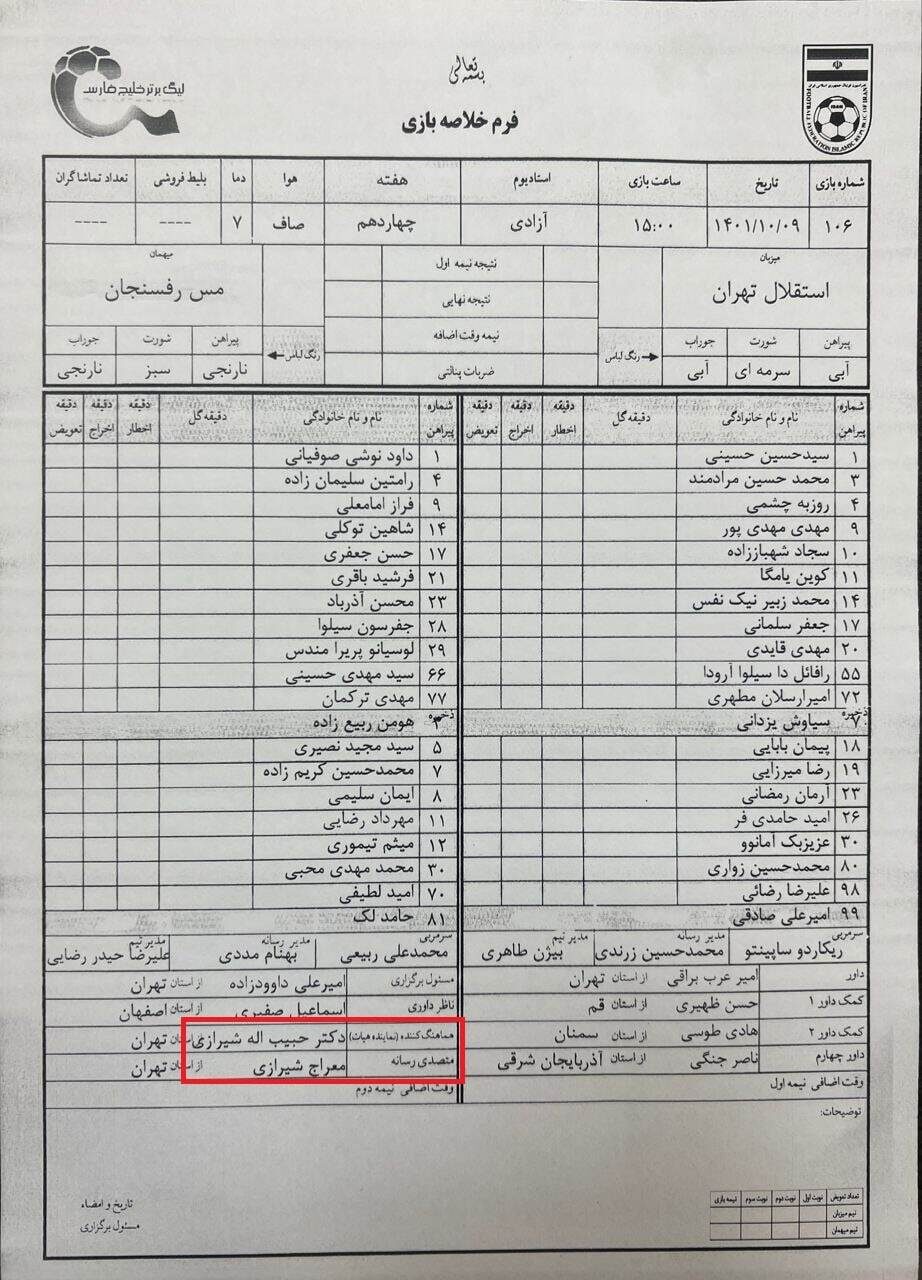 بسمه تعالی
لیگ برتر خلیج فارس
FOOTBALL FEDERATION ISLAMIC REPUBLIC OF IRAN
فرم خلاصه بازی
شماره بازی تاریخ ساعت بازی استادیوم هفته هوا دما بلیط فروشی تعداد تماشاگران
۱۰۶ ۱۴۰۱/۱۰/۰۹ ۱۵:۰۰ آزادی چهاردهم صاف ۷ ---- ----
میزبان نتیجه نیمه اول میهمان
استقلال تهران نتیجه نهایی مس رفسنجان
نیمه وقت اضافه
پیراهن شورت جوراب رنگ لباس ضربات پنالتی رنگ لباس پیراهن شورت جوراب
آبی سرمه ای آبی نارنجی سبز نارنجی
شماره پیراهن نام و نام خانوادگی دقیقه گل دقیقه اخطار دقیقه اخراج دقیقه تعویض شماره پیراهن نام و نام خانوادگی دقیقه گل دقیقه اخطار دقیقه اخراج دقیقه تعویض
۱ سیدحسین حسینی ۱ داود نوشی صوفیانی
۳ محمد حسین مرادمند ۴ رامتین سلیمان زاده
۴ روزبه چشمی ۹ فراز امامعلی
۹ مهدی مهدی پور ۱۴ شاهین توکلی
۱۰ سجاد شهباززاده ۱۷ حسن جعفری
۱۱ کوین یامگا ۲۱ فرشید باقری
۱۴ محمد زبیر نیک نفس ۲۳ محسن آذرباد
۱۷ جعفر سلمانی ۲۸ جفرسون سیلوا
۲۰ مهدی قایدی ۲۹ لوسیانو پریرا مندس
۵۵ رافائل دا سیلوا آرودا ۶۶ سید مهدی حسینی
۷۲ امیرارسلان مطهری ۷۷ مهدی ترکمان
ذخیره ۷ سیاوش یزدانی ذخیره ۳ هومن ربیع زاده
۱۸ پیمان بابایی ۵ سید مجید نصیری
۱۹ رضا میرزایی ۷ محمدحسین کریم زاده
۲۳ آرمان رمضانی ۸ ایمان سلیمی
۲۶ امید حامدی فر ۱۱ مهرداد رضایی
۳۰ عزیزبک آمانوو ۱۲ میثم تیموری
۸۰ محمدحسین زواری ۳۰ محمد مهدی محبی
۹۸ علیرضا رضائی ۷۰ امید لطیفی
۹۹ امیرعلی صادقی ۸۱ حامد لک
سرمربی ریکاردو ساپینتو مدیر رسانه محمدحسین زرندی مدیر تیم بیژن طاهری سرمربی محمدعلی ربیعی مدیر رسانه بهنام مددی مدیر تیم علیرضا حیدر رضایی
داور امیر عرب براقی از استان تهران مسئول برگزاری امیرعلی داوودزاده از استان تهران
کمک داور ۱ حسن ظهیری از استان قم ناظر داوری اسماعیل صفیری از استان اصفهان
کمک داور ۲ هادی طوسی از استان سمنان هماهنگ کننده (نماینده هیات) دکتر حبیب اله شیرازی از استان تهران
داور چهارم ناصر جنگی از استان آذربایجان شرقی متصدی رسانه معراج شیرازی از استان تهران
وقت اضافی نیمه اول وقت اضافی نیمه دوم
توضیحات:
تعداد تعویض نوبت اول نوبت دوم نوبت سوم نیمه بازی
تیم میزبان
تیم میهمان
تاریخ و امضاء
مسئول برگزاری